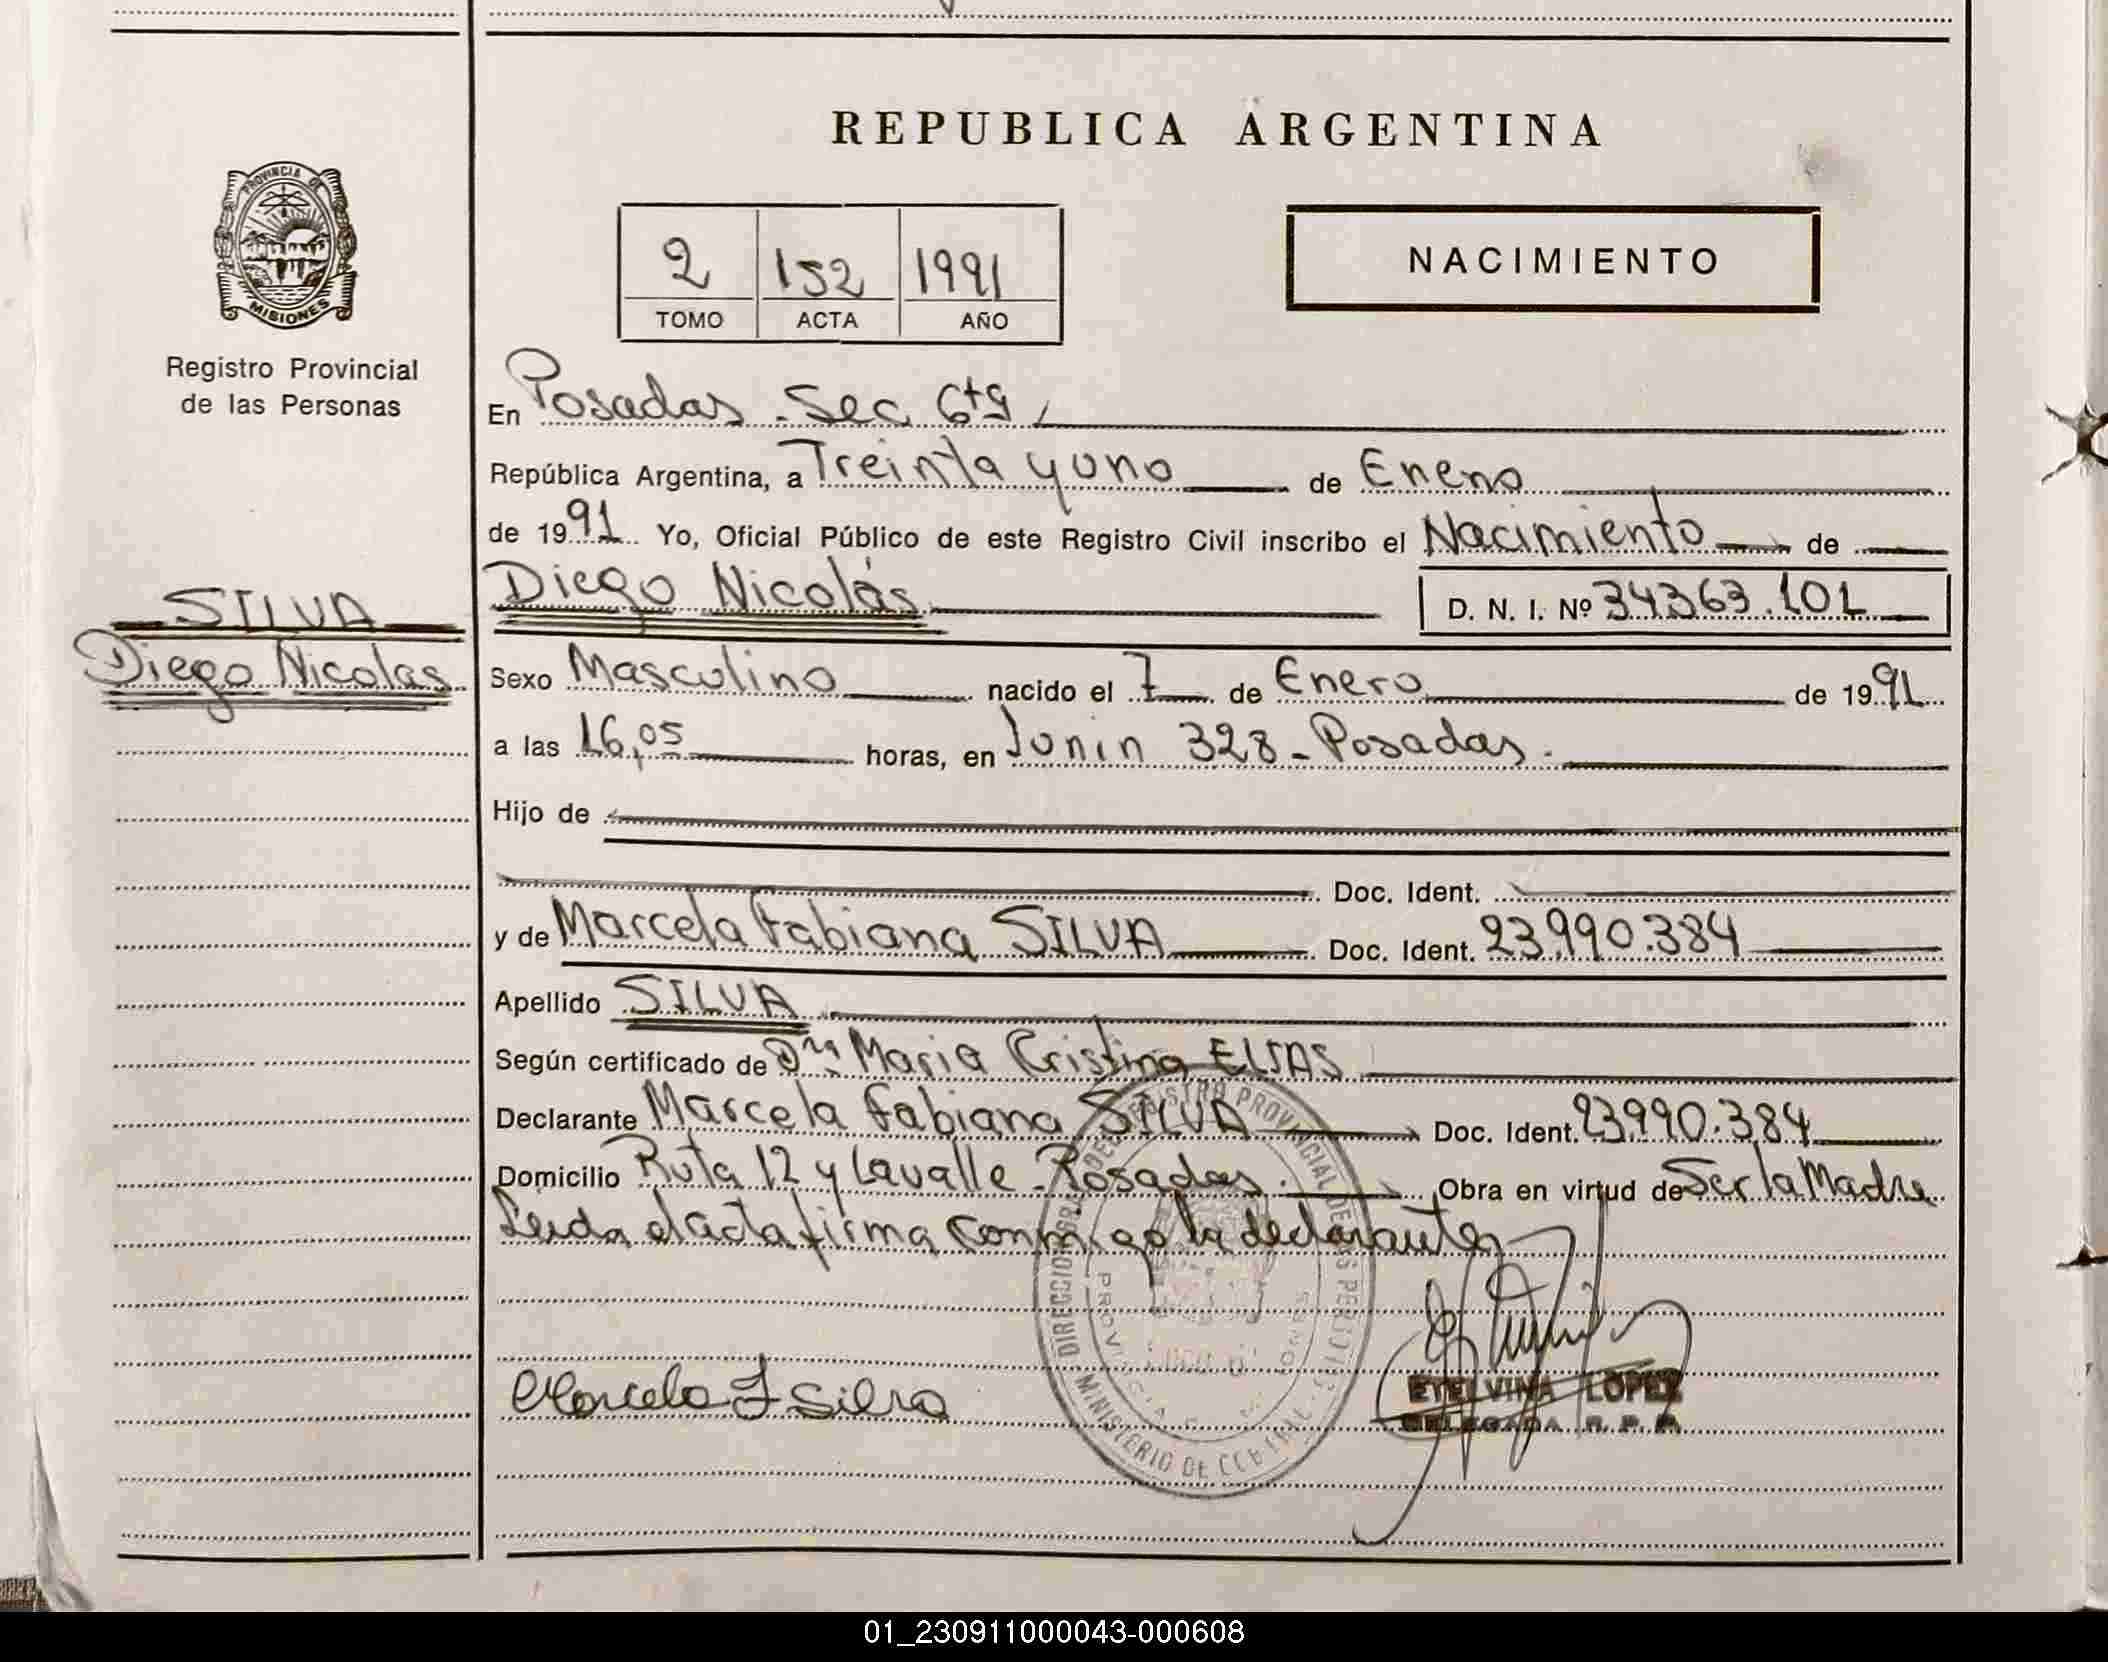 REPUBLICA ARGENTINA
PROVINCIA DE
MISIONES
Registro Provincial
de las Personas
2 152 1991
TOMO ACTA AÑO
NACIMIENTO
En Posadas - Sec 6ta
República Argentina, a Treinta y uno de Enero
de 1991 Yo, Oficial Público de este Registro Civil inscribo el Nacimiento de
Diego Nicolás D. N. I. Nº 34.363.101
SILVA
Diego Nicolas
Sexo Masculino nacido el 7 de Enero de 1991
a las 16,05 horas, en Junin 328 - Posadas.
Hijo de
Doc. Ident.
y de Marcela Fabiana SILVA Doc. Ident. 23.990.384
Apellido SILVA
Según certificado de Dra Maria Cristina ELIAS
Declarante Marcela Fabiana SILVA Doc. Ident. 23.990.384
Domicilio Ruta 12 y Lavalle - Posadas. Obra en virtud de Ser la Madre
Leida el acta firma conmigo la declarante
Marcela F Silva
ETELVINA LOPEZ
DELEGADA R. P. P.
REGISTRO PROVINCIAL DE
MINISTERIO DE
01_230911000043-000608